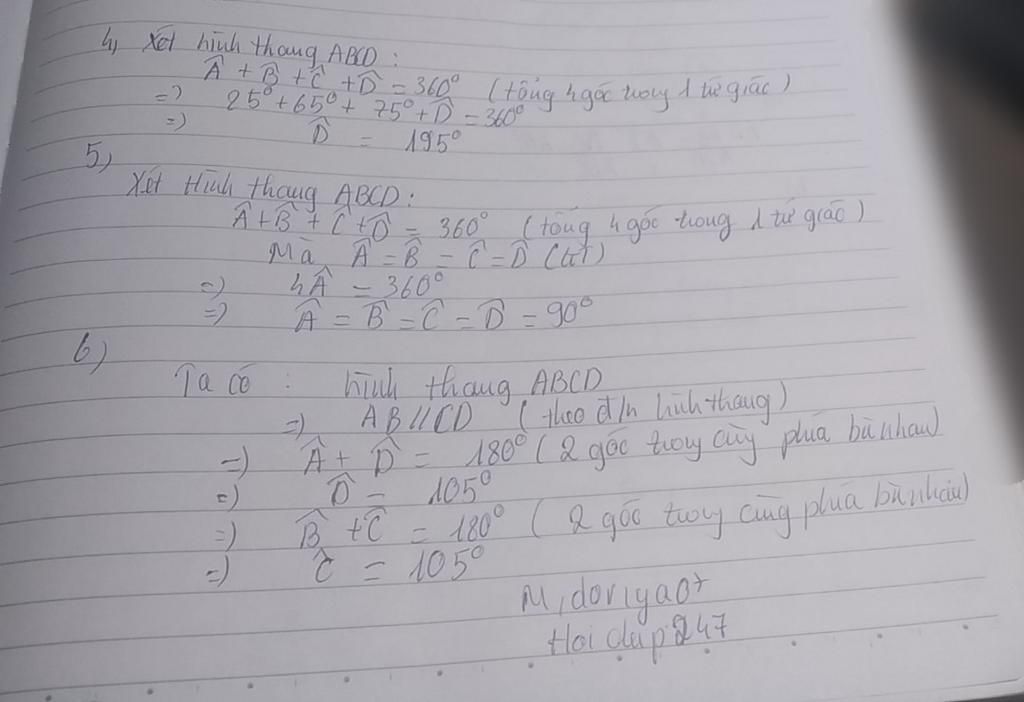 4, Xét hình thang ABCD:
Â + B̂ + Ĉ + D̂ = 360° (tổng 4 góc trong 1 tứ giác)
=> 25° + 65° + 75° + D̂ = 360°
=> D̂ = 195°
5,
Xét Hình thang ABCD:
Â + B̂ + Ĉ + D̂ = 360° (tổng 4 góc trong 1 tứ giác)
Mà Â = B̂ = Ĉ = D̂ (GT)
=> 4Â = 360°
=> Â = B̂ = Ĉ = D̂ = 90°
6)
Ta có: hình thang ABCD
=> AB // CD (theo đ/n hình thang)
=> Â + D̂ = 180° (2 góc trong cùng phía bù nhau)
=> D̂ = 105°
=> B̂ + Ĉ = 180° (2 góc trong cùng phía bù nhau)
=> Ĉ = 105°
M,doriya07
Hoi dap 247